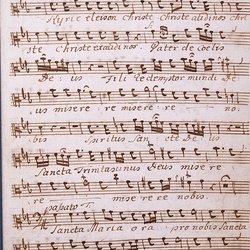 Kyrie eleison Christe Christe audi nos Chri
ste Christe exaudi nos. Pater de coelis
De us Fili Redemptor mundi De
us misere re misere re no
bis Spiritus San cte De us
Sancta Trinitas unus Deus misere
re misere re nobis.
Sancta Maria ora pro nobis Sancta